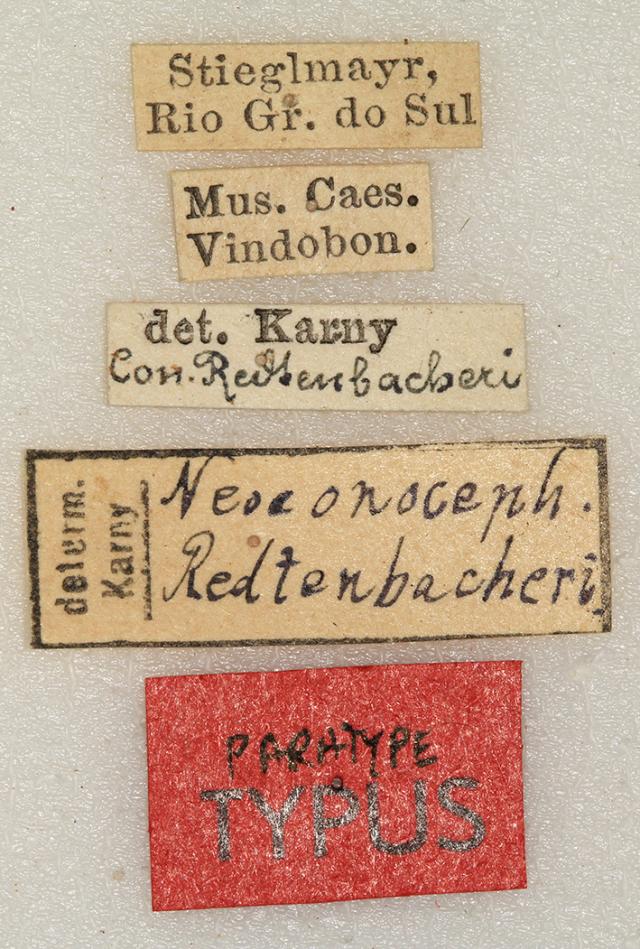 Stieglmayr,
Rio Gr. do Sul
Mus. Caes.
Vindobon.
det. Karny
Con. Redtenbacheri
determ.
Karny
Neoconoceph.
Redtenbacheri
PARATYPE
TYPUS